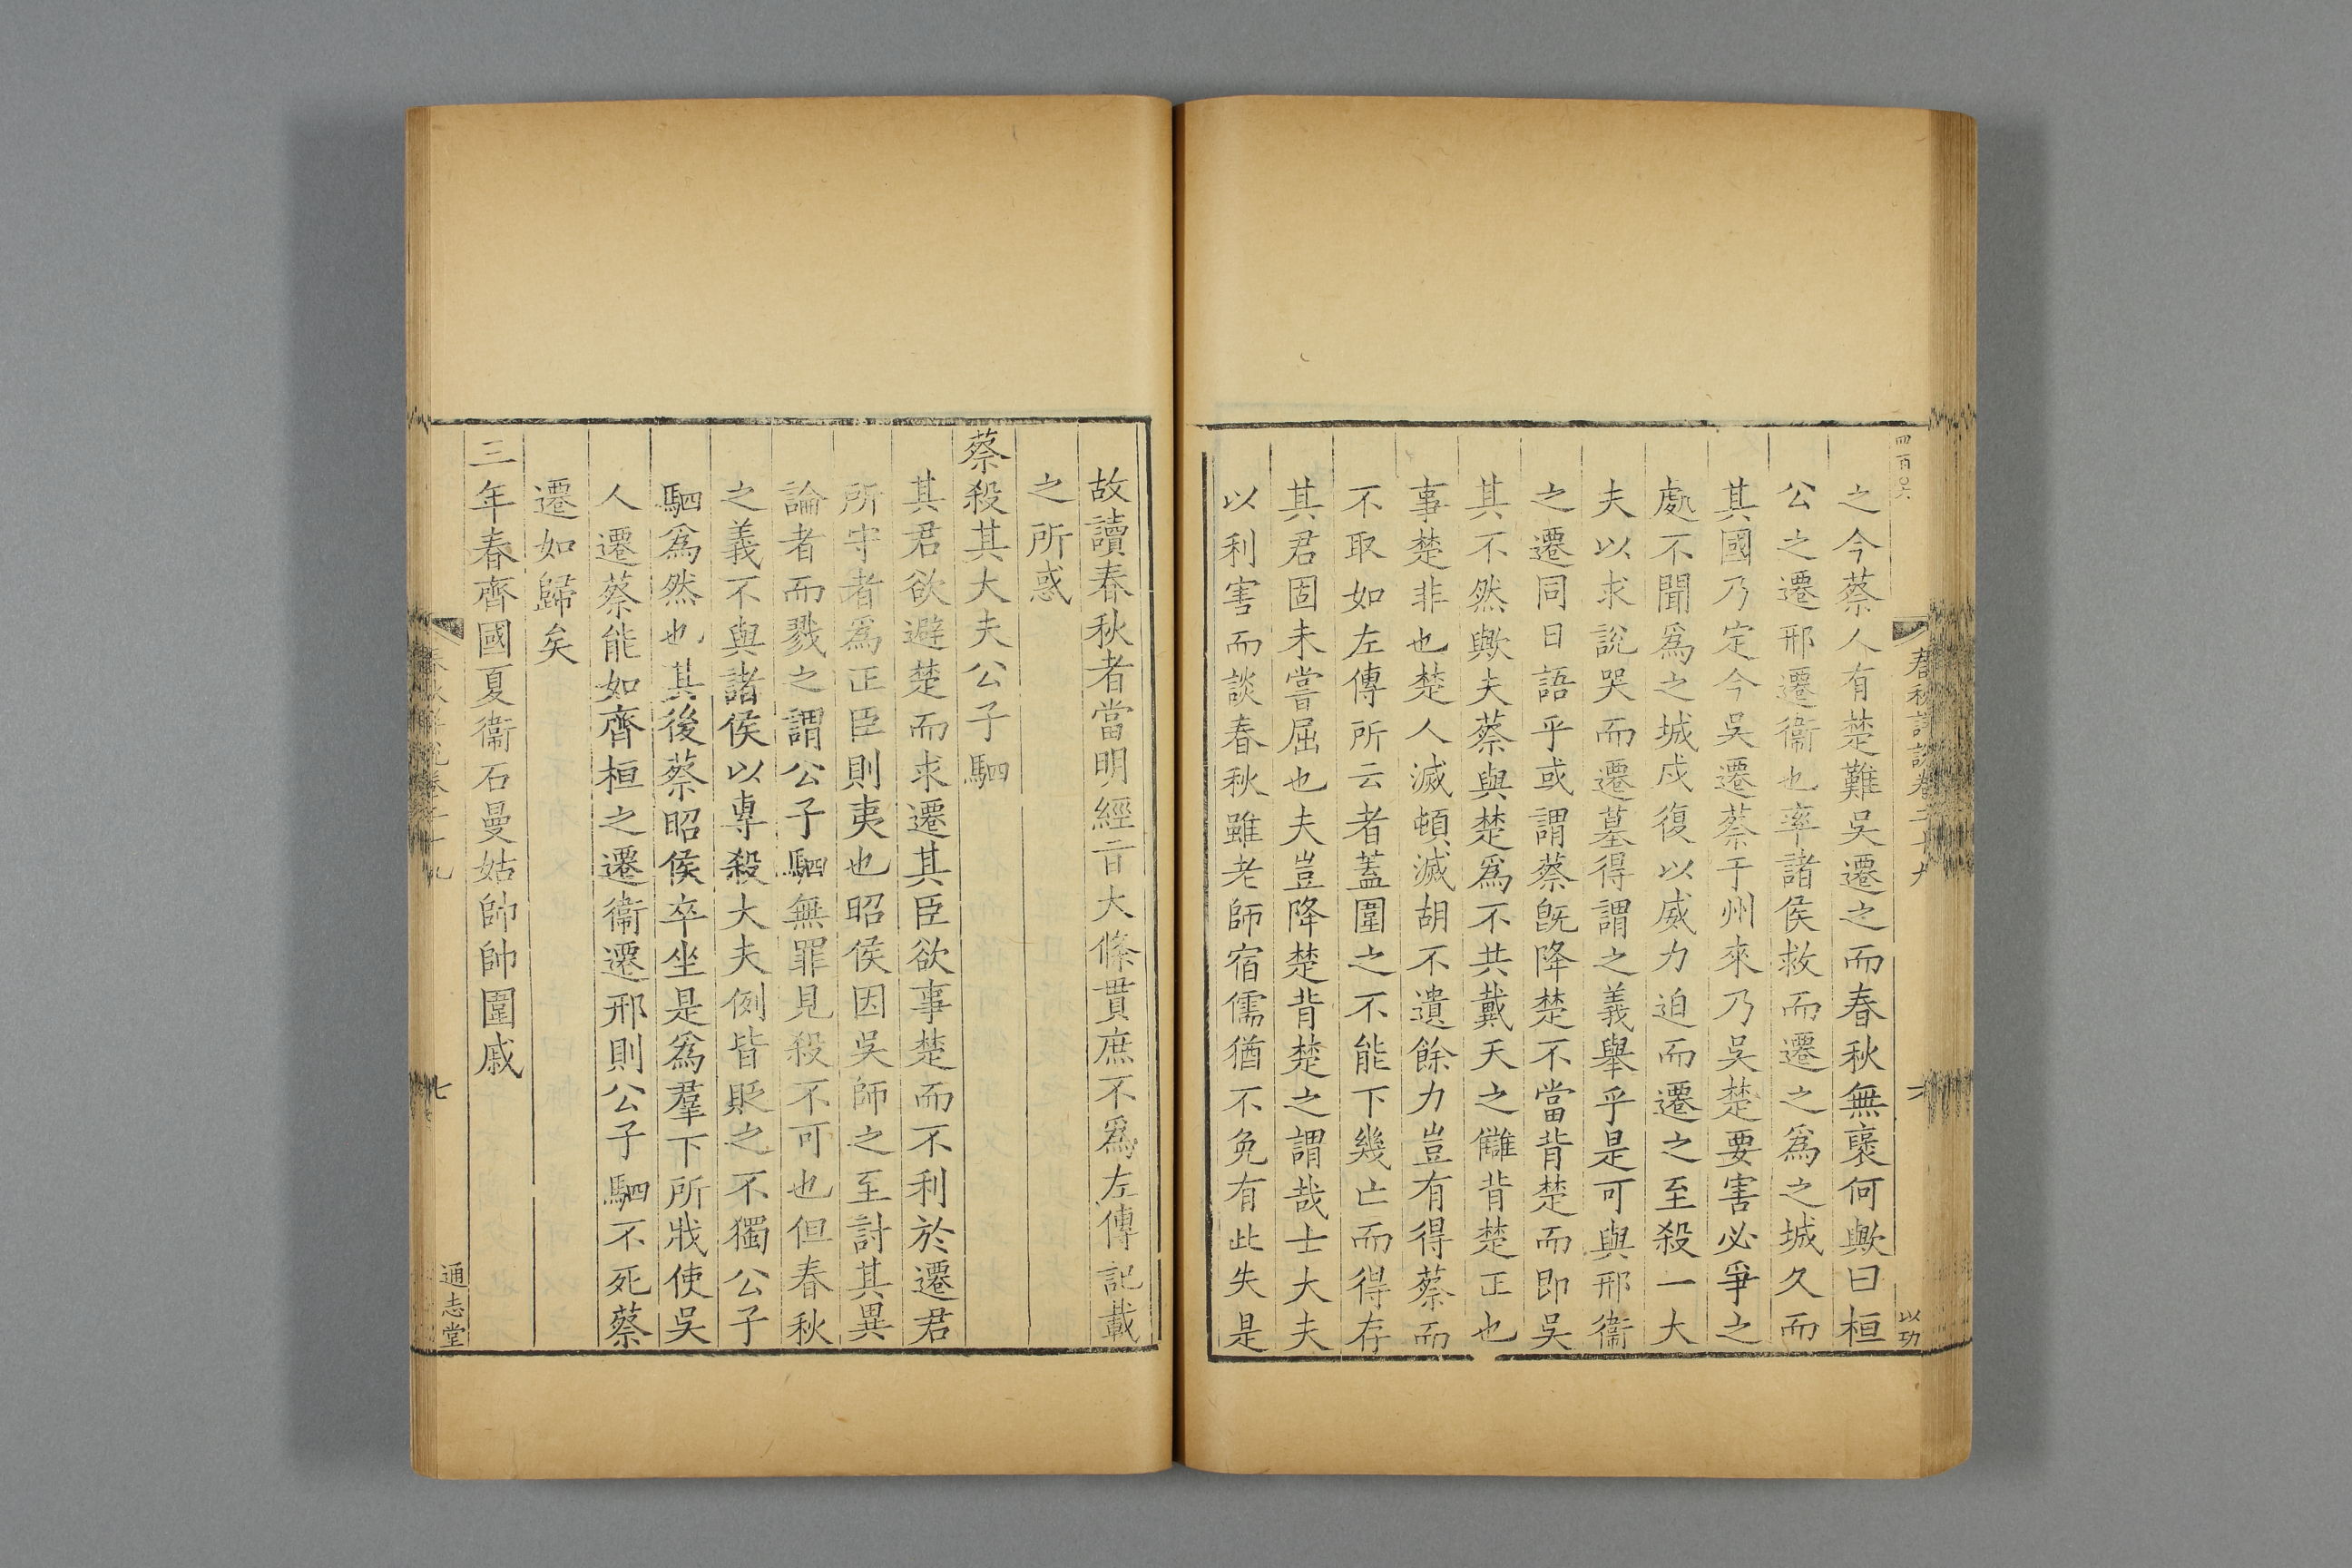 四百〇六
春秋詳說卷二十九
六
以功
之今蔡人有楚難吳遷之而春秋無褒何歟曰桓
公之遷邢遷衞也率諸侯救而遷之爲之城久而
其國乃定今吳遷蔡于州來乃吳楚要害必爭之
處不聞爲之城戍復以威力迫而遷之至殺一大
夫以求說哭而遷墓得謂之義舉乎是可與邢衞
之遷同日語乎或謂蔡旣降楚不當背楚而即吳
其不然歟夫蔡與楚爲不共戴天之讎背楚正也
事楚非也楚人滅頓滅胡不遺餘力豈有得蔡而
不取如左傳所云者蓋圍之不能下幾亡而得存
其君固未嘗屈也夫豈降楚背楚之謂哉士大夫
以利害而談春秋雖老師宿儒猶不免有此失是
故讀春秋者當明經旨大條貫庶不爲左傳記載
之所惑
蔡殺其大夫公子駟
其君欲避楚而求遷其臣欲事楚而不利於遷君
所守者爲正臣則夷也昭侯因吳師之至討其異
論者而戮之謂公子駟無罪見殺不可也但春秋
之義不與諸侯以專殺大夫例皆貶之不獨公子
駟爲然也其後蔡昭侯卒坐是爲羣下所戕使吳
人遷蔡能如齊桓之遷衞遷邢則公子駟不死蔡
遷如歸矣
三年春齊國夏衞石曼姑帥師圍戚
春秋詳說卷二十九
七
通志堂